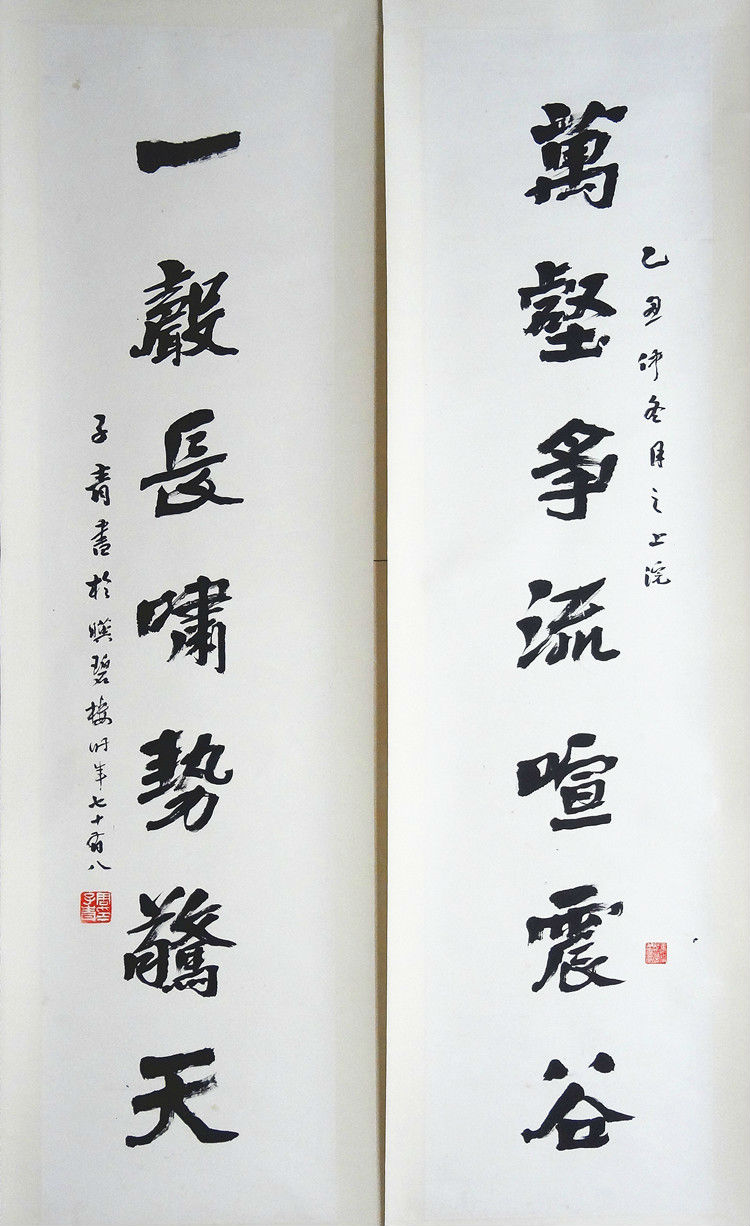 萬壑爭流喧震谷
乙丑仲冬月之上浣
一聲長嘯勢驚天
子青書於暎碧樓時年七十有八